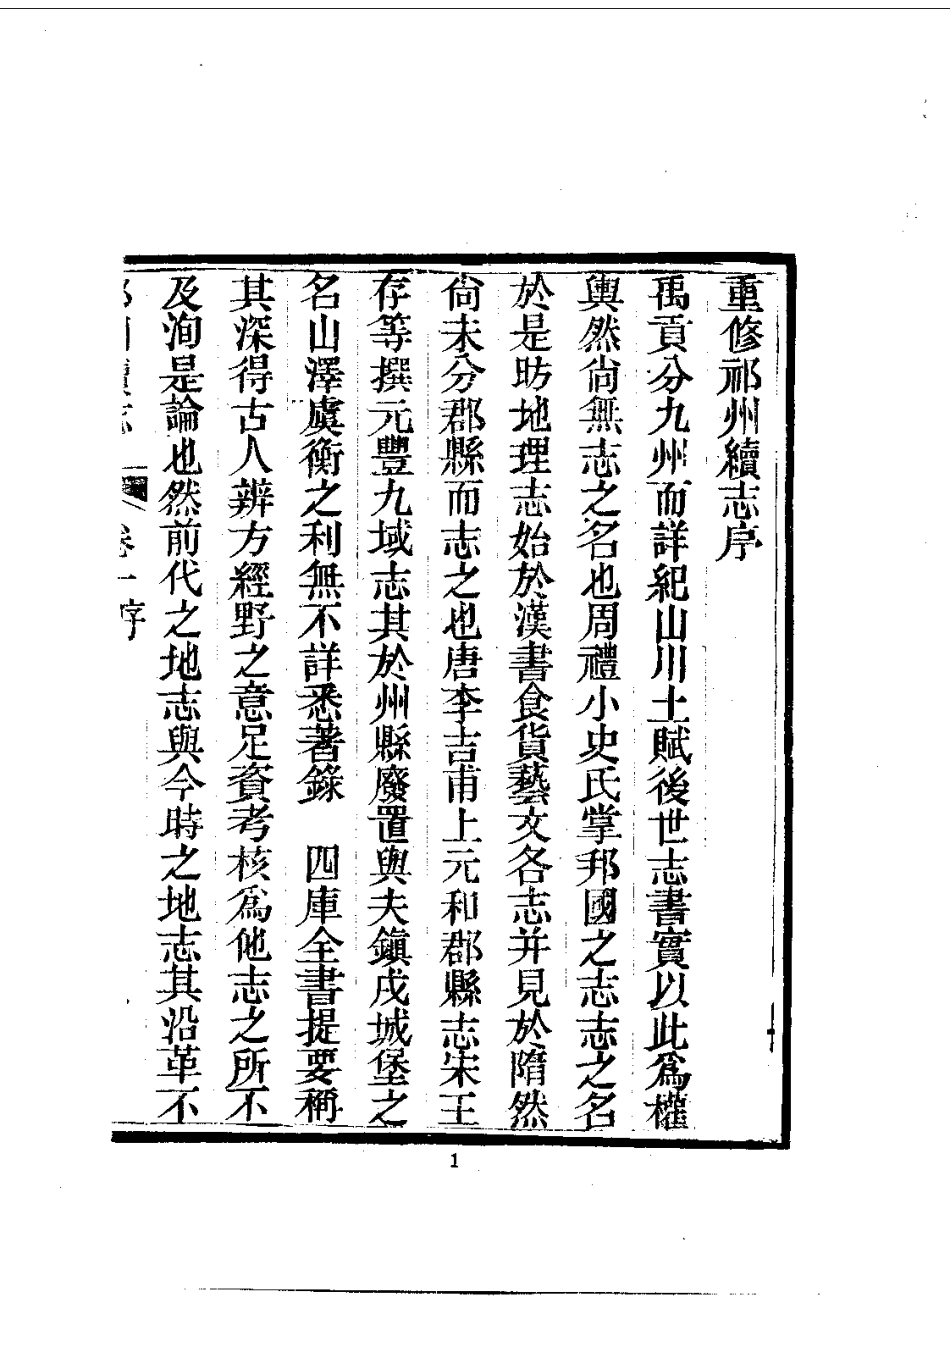 重修祁州續志序
禹貢分九州而詳紀山川土賦後世志書實以此爲權
輿然尙無志之名也周禮小史氏掌邦國之志志之名
於是昉地理志始於漢書食貨藝文各志并見於隋然
尙未分郡縣而志之也唐李吉甫上元和郡縣志宋王
存等撰元豐九域志其於州縣廢置與夫鎭戍城堡之
名山澤虞衡之利無不詳悉著錄　四庫全書提要稱
其深得古人辨方經野之意足資考核爲他志之所不
及洵是論也然前代之地志與今時之地志其沿革不
卷一序
1